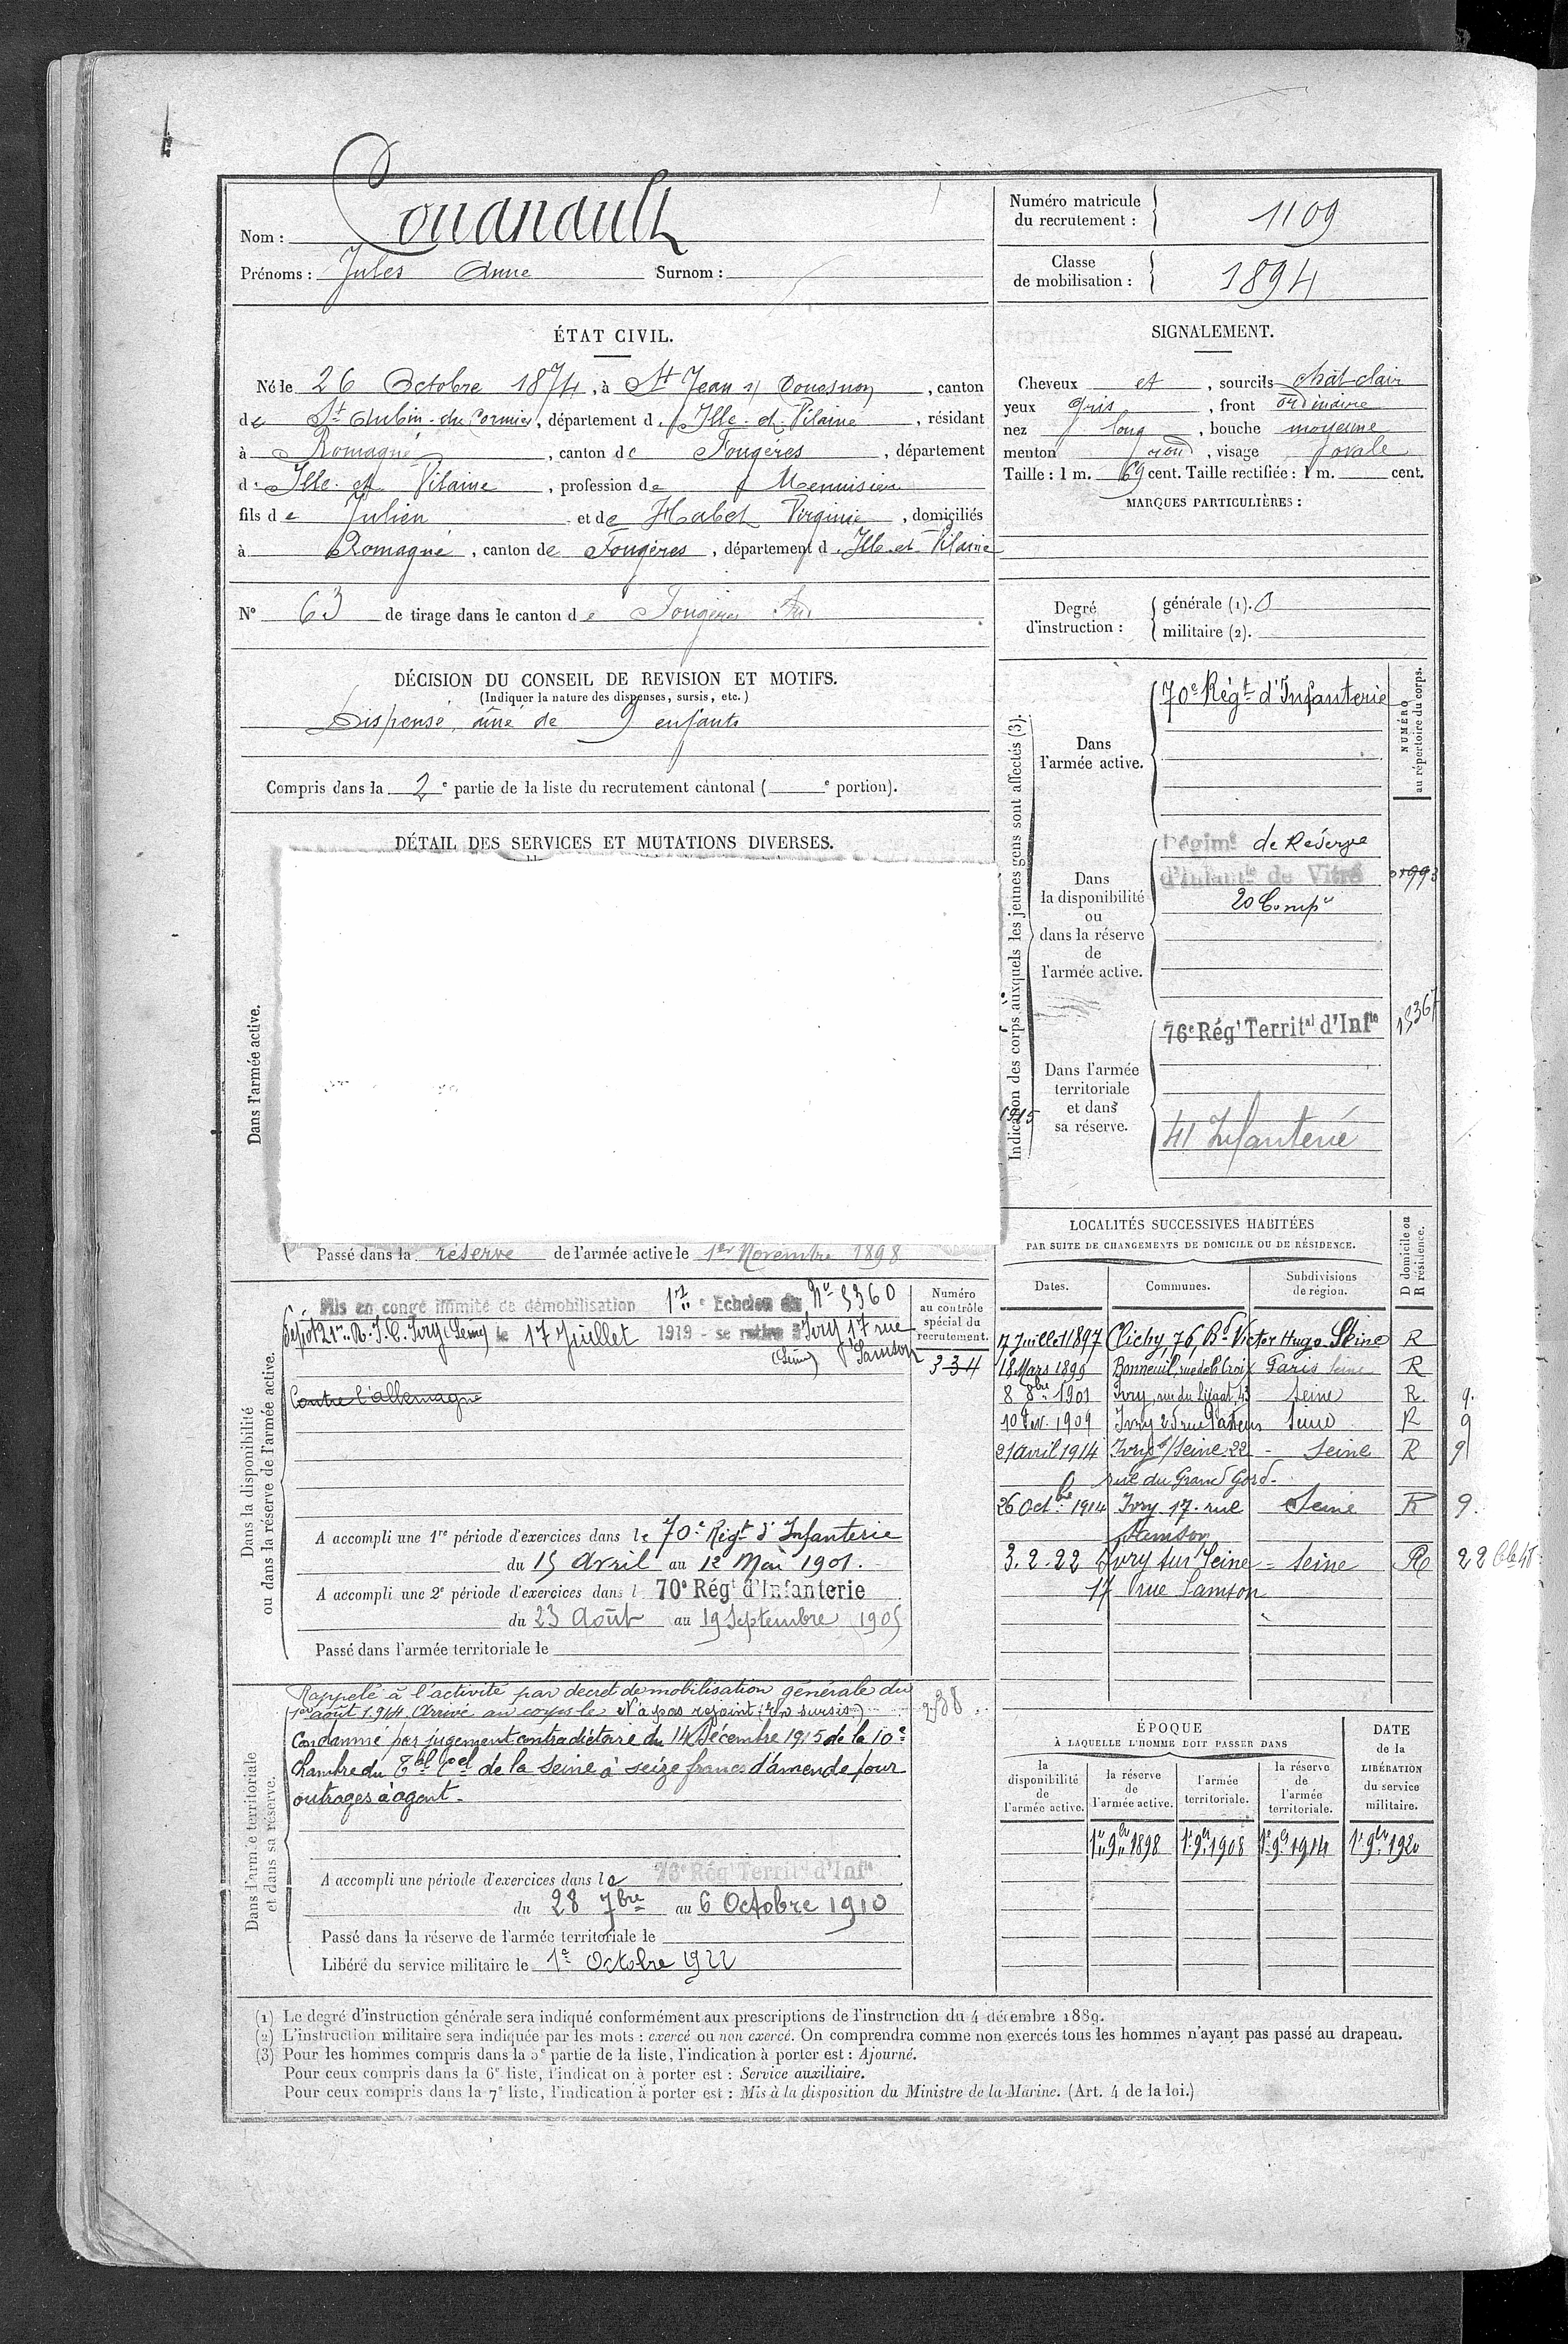 Nom : Couanault
Prénoms : Jules Anne Surnom :
Numéro matricule du recrutement : 1109
Classe de mobilisation : 1894
ÉTAT CIVIL.
Né le 26 Octobre 1874, à St Jean s/ Couesnon, canton
de St Aubin-du-Cormier, département d'Ille-et-Vilaine, résidant
à Romagné, canton de Fougères, département
d'Ille et Vilaine, profession de Menuisier
fils de Julien et de Habet Virginie, domiciliés
à Romagné, canton de Fougères, département d'Ille-et-Vilaine
N° 63 de tirage dans le canton de Fougères
SIGNALEMENT.
Cheveux et, sourcils chât-clair
yeux gris, front ordinaire
nez long, bouche moyenne
menton rond, visage ovale
Taille : 1 m. 69 cent. Taille rectifiée : 1 m. cent.
MARQUES PARTICULIÈRES :
Degré d'instruction :
générale (1). 0
militaire (2).
DÉCISION DU CONSEIL DE REVISION ET MOTIFS.
(Indiquer la nature des dispenses, sursis, etc.)
Dispensé, aîné de 9 enfants
Compris dans la 2e partie de la liste du recrutement cantonal ( e portion).
DÉTAIL DES SERVICES ET MUTATIONS DIVERSES.
Dans l'armée active.
Passé dans la réserve de l'armée active le 1er Novembre 1898
Indication des corps auxquels les jeunes gens sont affectés (3).
NUMÉRO au répertoire du corps.
Dans l'armée active.
70e Régt d'Infanterie
Dans la disponibilité ou dans la réserve de l'armée active.
Régimt de Réserve
d'Infantie de Vitré
20 Compie
Dans l'armée territoriale et dans sa réserve.
76e Régt Territal d'Infie
15367
41 Infanterie
1915
LOCALITÉS SUCCESSIVES HABITÉES
PAR SUITE DE CHANGEMENTS DE DOMICILE OU DE RÉSIDENCE.
Dates. Communes. Subdivisions de région. D domicile ou R résidence.
17 Juillet 1897 Clichy, 76, Bd Victor Hugo Seine R
18 Mars 1899 Bonneuil, rue de la Croix Paris Seine R
8 8bre 1901 Ivry, rue du Liégat, 43 Seine R. 9.
10 Fev. 1909 Ivry 25 rue Pasteur Seine R 9
21 avril 1914 Ivry s/Seine 22 - Seine R 9
rue du Grand Gord -
26 Octbre 1914 Ivry 17. rue Seine R 9.
Samson
3. 2. 22 Ivry sur Seine = Seine R
17 rue Samson
Dans la disponibilité ou dans la réserve de l'armée active.
Numéro au contrôle spécial du recrutement.
334
Mis en congé illimité de démobilisation 1er Echelon du No 5360
Dépôt 21e R.I.C. Ivry (Seine) le 17 Juillet 1919 - se retire à Ivry 17 rue
(Seine) Samson
Contre l'allemagne
A accompli une 1re période d'exercices dans le 70e Régt d'Infanterie
du 15 avril au 12 Mai 1901.
A accompli une 2e période d'exercices dans l 70e Régt d'Infanterie
du 23 Août au 19 Septembre 1905
Passé dans l'armée territoriale le
Dans l'armée territoriale et dans sa réserve.
238
Rappelé à l'activité par decret de mobilisation générale du
1er août 1914. Arrivé au corps le N'a pas rejoint (En sursis)
Condamné par jugement contradictoire du 14 Décembre 1915 de la 10e
Chambre du Tbal Coel de la Seine à seize francs d'amende pour
outrages à agent.
A accompli une période d'exercices dans le 76e Régt Territal d'Infie
du 28 7bre au 6 Octobre 1910
Passé dans la réserve de l'armée territoriale le
Libéré du service militaire le 1er Octobre 1922
ÉPOQUE
À LAQUELLE L'HOMME DOIT PASSER DANS
la disponibilité de l'armée active. la réserve de l'armée active. l'armée territoriale. la réserve de l'armée territoriale.
DATE de la LIBÉRATION du service militaire.
1er 9bre 1898 1er 9bre 1908 1er 9bre 1914 1er 9bre 1920
(1) Le degré d'instruction générale sera indiqué conformément aux prescriptions de l'instruction du 4 décembre 1889.
(2) L'instruction militaire sera indiquée par les mots : exercé ou non exercé. On comprendra comme non exercés tous les hommes n'ayant pas passé au drapeau.
(3) Pour les hommes compris dans la 5e partie de la liste, l'indication à porter est : Ajourné.
Pour ceux compris dans la 6e liste, l'indication à porter est : Service auxiliaire.
Pour ceux compris dans la 7e liste, l'indication à porter est : Mis à la disposition du Ministre de la Marine. (Art. 4 de la loi.)